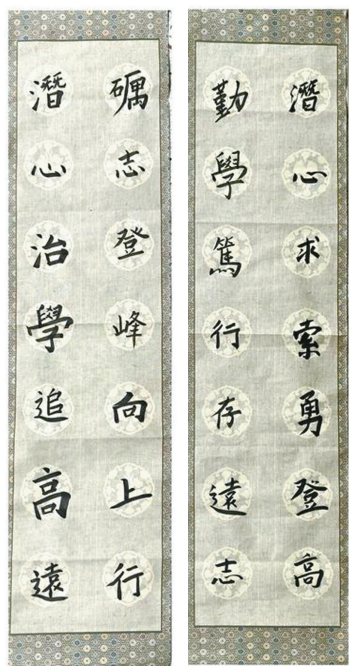 潛心求索勇登高
勤學篤行存遠志
礪志登峰向上行
潛心治學追高遠